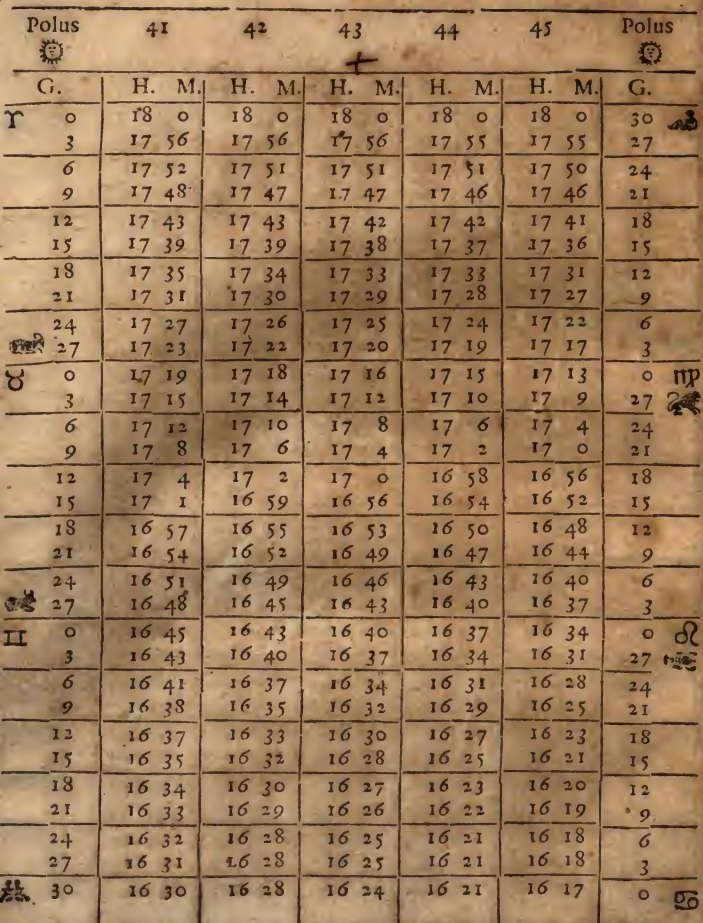 Polus 41 42 43 44 45 Polus
G. H. M. H. M. H. M. H. M. H. M. G.
♈ 0 18 0 18 0 18 0 18 0 18 0 30
3 17 56 17 56 17 56 17 55 17 55 27
6 17 52 17 51 17 51 17 51 17 50 24
9 17 48 17 47 17 47 17 46 17 46 21
12 17 43 17 43 17 42 17 42 17 41 18
15 17 39 17 39 17 38 17 37 17 36 15
18 17 35 17 34 17 33 17 33 17 31 12
21 17 31 17 30 17 29 17 28 17 27 9
24 17 27 17 26 17 25 17 24 17 22 6
27 17 23 17 22 17 20 17 19 17 17 3
♉ 0 17 19 17 18 17 16 17 15 17 13 0 ♍
3 17 15 17 14 17 12 17 10 17 9 27
6 17 12 17 10 17 8 17 6 17 4 24
9 17 8 17 6 17 4 17 2 17 0 21
12 17 4 17 2 17 0 16 58 16 56 18
15 17 1 16 59 16 56 16 54 16 52 15
18 16 57 16 55 16 53 16 50 16 48 12
21 16 54 16 52 16 49 16 47 16 44 9
24 16 51 16 49 16 46 16 43 16 40 6
27 16 48 16 45 16 43 16 40 16 37 3
♊ 0 16 45 16 43 16 40 16 37 16 34 0 ♌
3 16 43 16 40 16 37 16 34 16 31 27
6 16 41 16 37 16 34 16 31 16 28 24
9 16 38 16 35 16 32 16 29 16 25 21
12 16 37 16 33 16 30 16 27 16 23 18
15 16 35 16 32 16 28 16 25 16 21 15
18 16 34 16 30 16 27 16 23 16 20 12
21 16 33 16 29 16 26 16 22 16 19 9
24 16 32 16 28 16 25 16 21 16 18 6
27 16 31 16 28 16 25 16 21 16 18 3
30 16 30 16 28 16 24 16 21 16 17 0 ♋